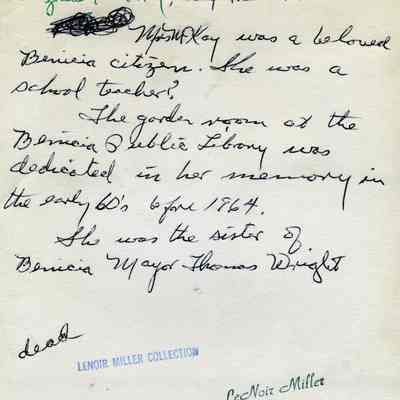 Mrs McKay was a beloved
Benicia citizen. She was a
school teacher?
The garden room at the
Benicia Public Library was
dedicated in her memory in
the early 60's before 1964.
She was the sister of
Benicia Mayor Thomas Wright
dead
LENOIR MILLER COLLECTION
LeNoir Miller